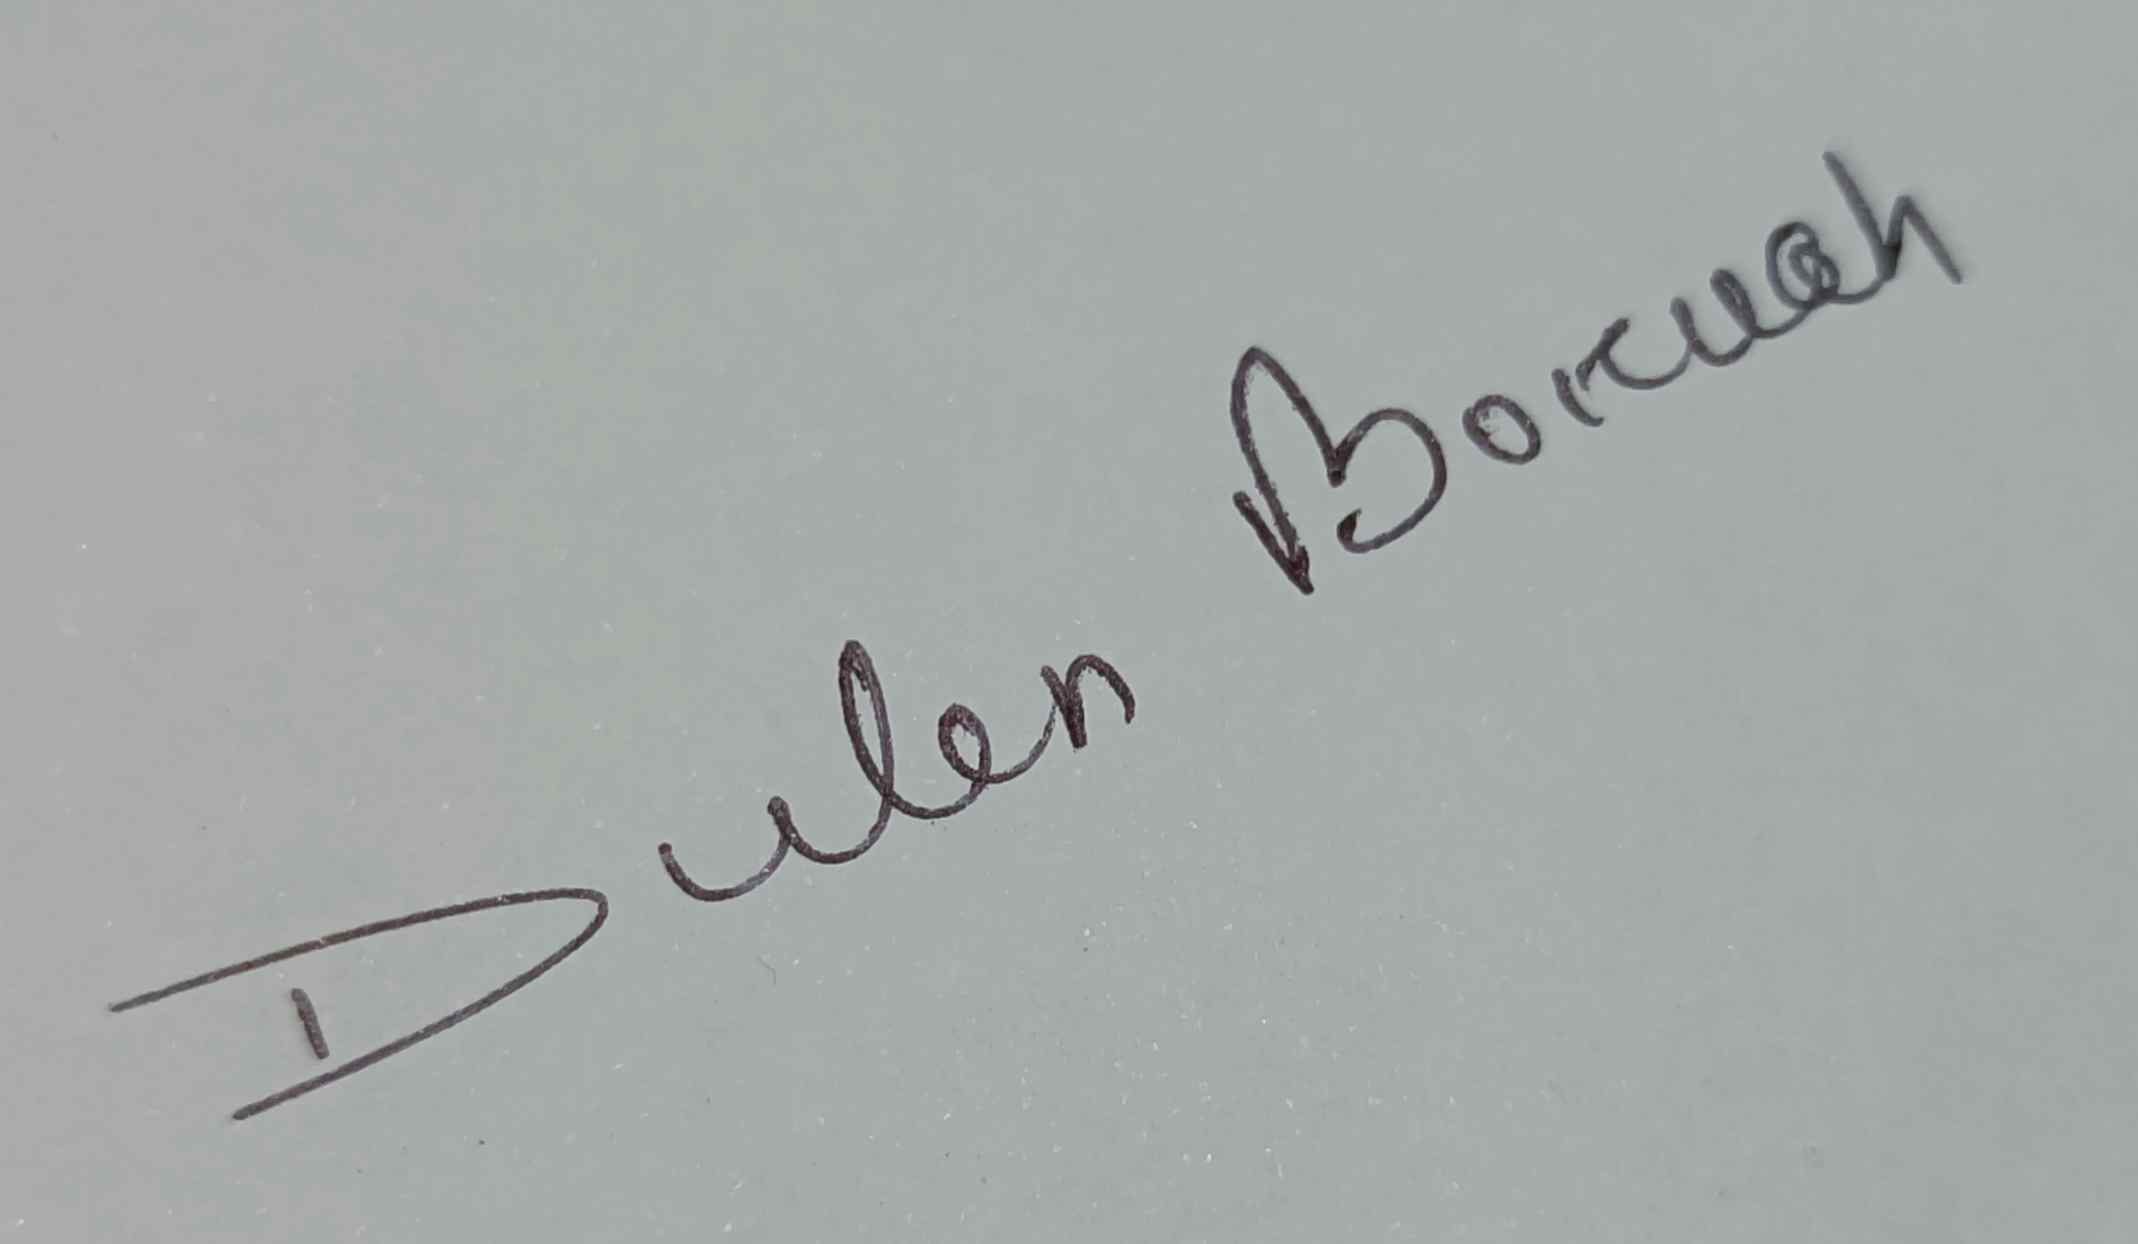 Dulen Boruah